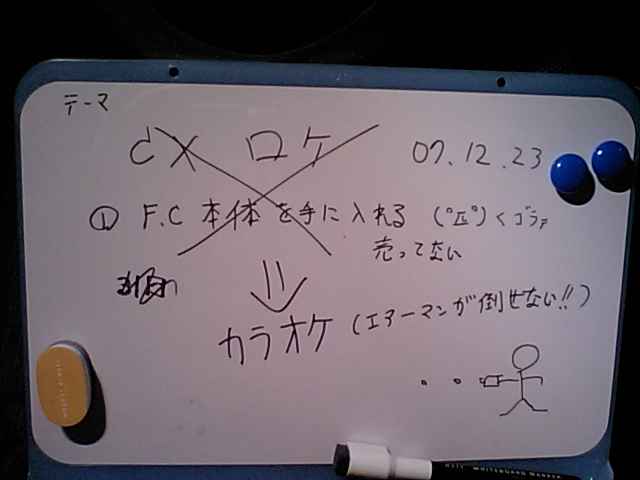 テーマ
dX ロケ 07.12.23
① F.C 本体を手に入れる (ﾟДﾟ)くゴラァ
売ってない
カラオケ (エアーマンが倒せない!!)